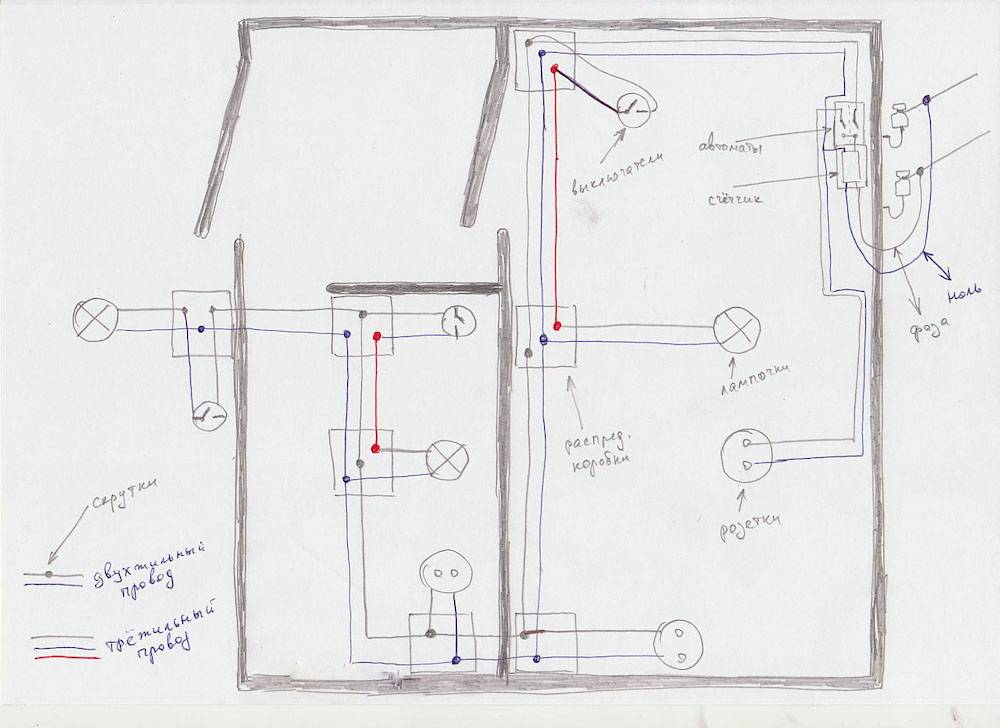 автоматы
выключатели
счётчик
ноль
фаза
лампочки
распред.
коробки
скрутки
розетки
двухжильный
провод
трёхжильный
провод